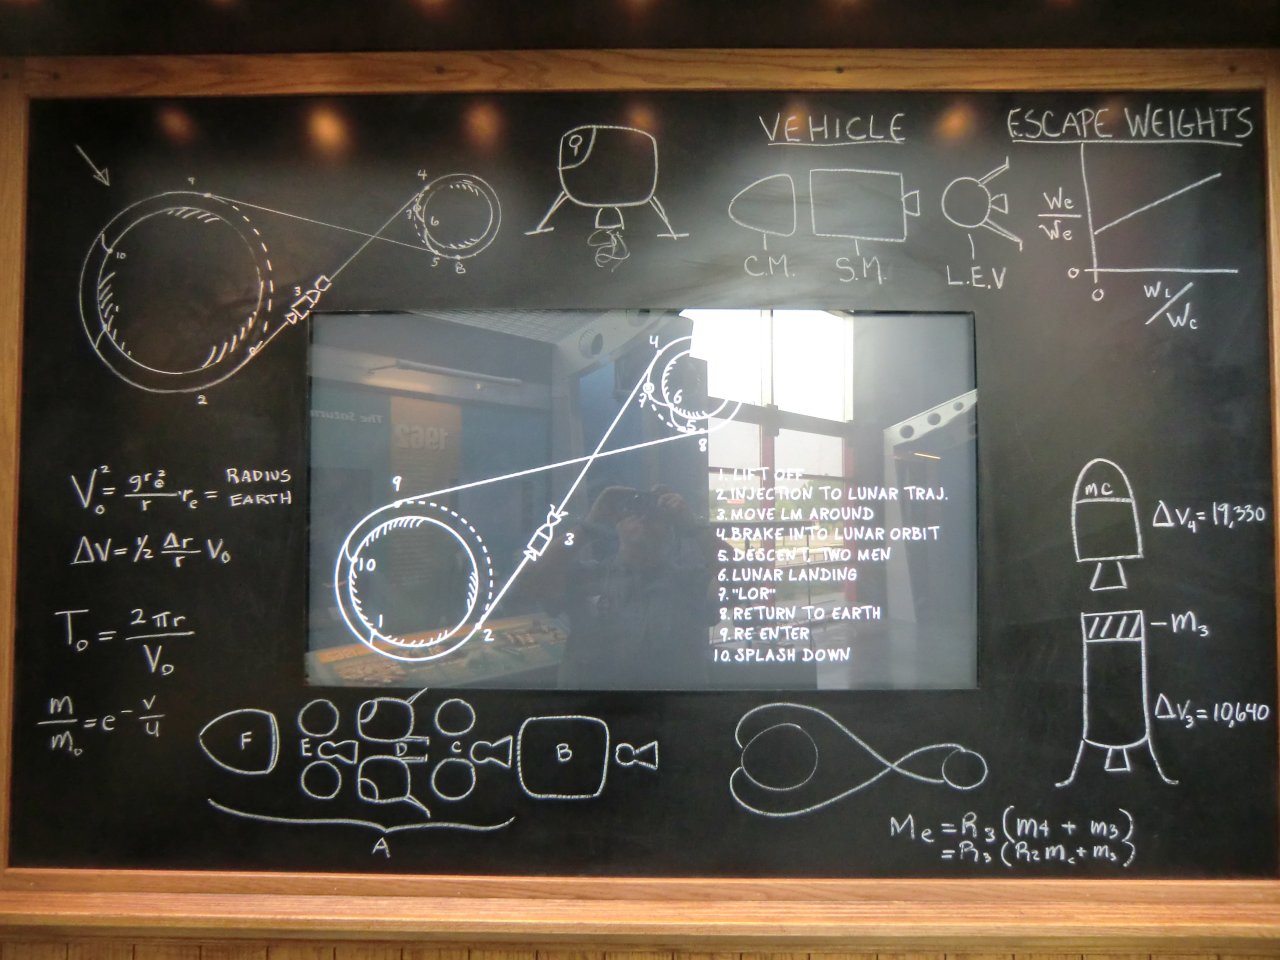 VEHICLE
ESCAPE WEIGHTS
C.M.
S.M.
L.E.V
We/We
0
0
WL/Wc
9
10
2
3
4
6
5
8
9
V₀² = gr₀²/r · re = RADIUS EARTH
ΔV = 1/2 Δr/r V₀
T₀ = 2πr/V₀
m/m₀ = e^-v/u
4
7
6
5
8
9
3
10
1
2
1. LIFT OFF
2. INJECTION TO LUNAR TRAJ.
3. MOVE LM AROUND
4. BRAKE INTO LUNAR ORBIT
5. DESCENT, TWO MEN
6. LUNAR LANDING
7. "LOR"
8. RETURN TO EARTH
9. RE ENTER
10. SPLASH DOWN
mc
ΔV₄ = 19,330
-M₃
ΔV₃ = 10,640
F
E
D
C
B
A
Me = R₃ (m4 + m3)
= R₃ (R2 mc + m3)